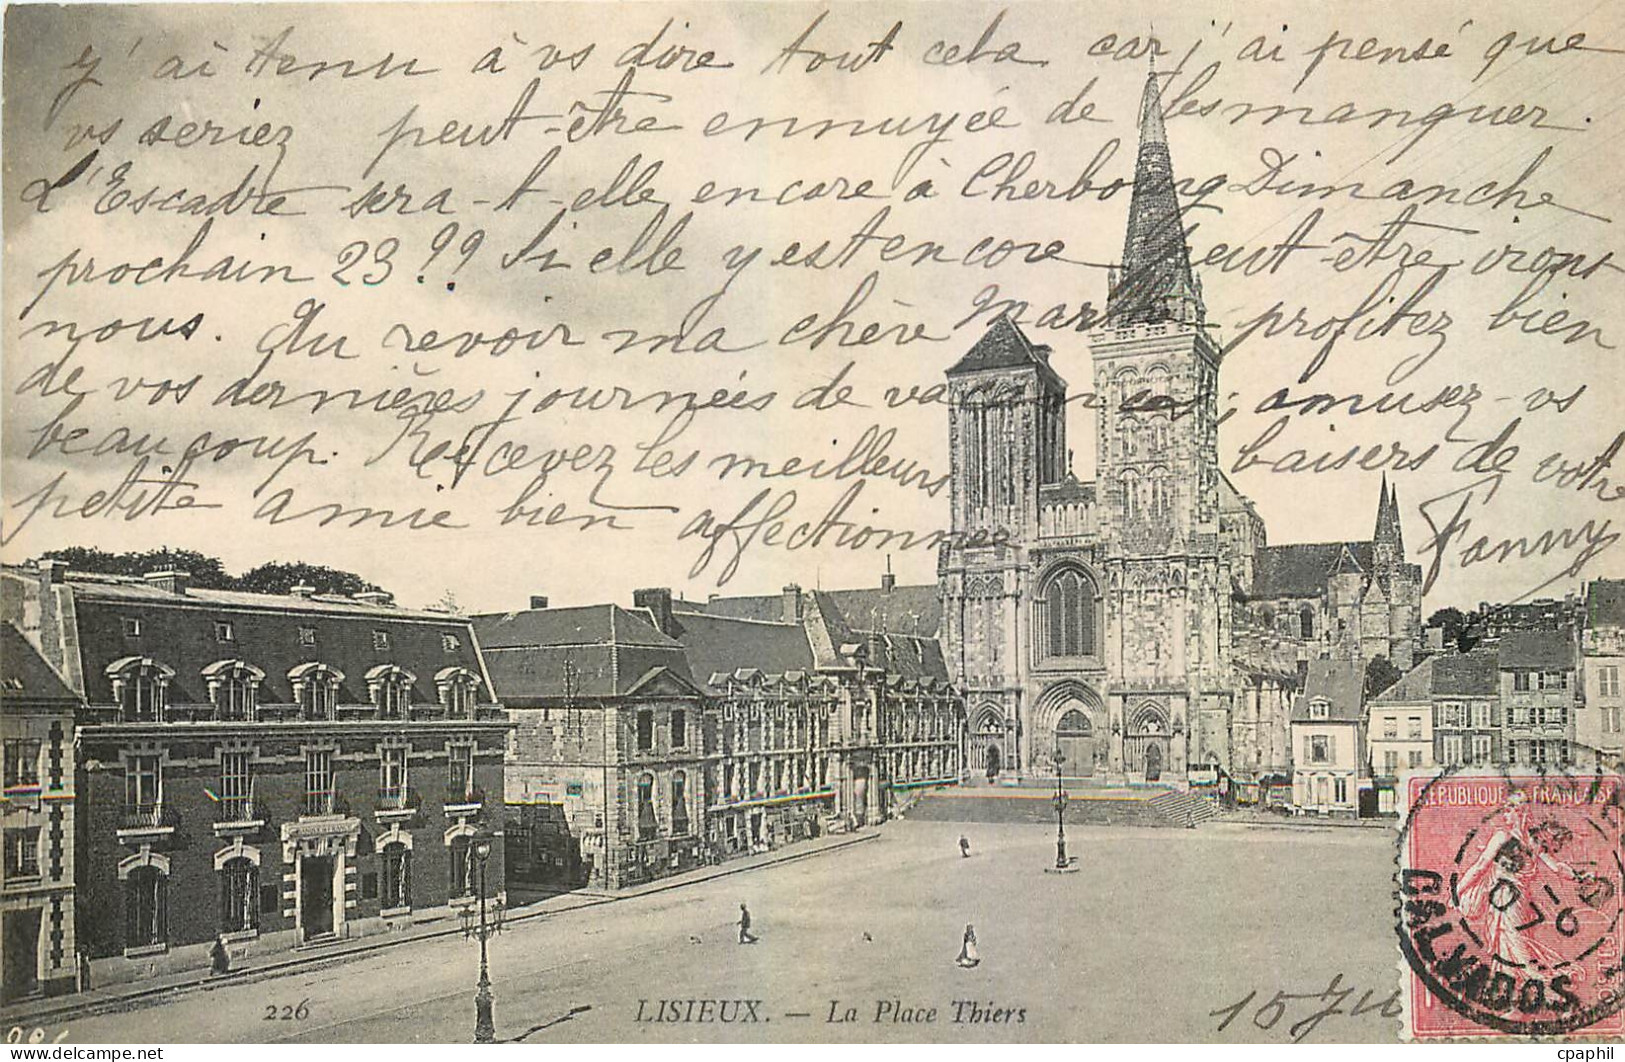 y' ai tenu à vs dire tout cela car j'ai pensé que
vs seriez peut-être ennuyée de les manquer.
L'Escadre sera-t-elle encore à Cherbourg Dimanche
prochain 23?? Si elle y est encore peut-être iront
nous. Au revoir ma chère Marthe profitez bien
de vos dernières journées de vacances, amusez-vs
beaucoup. Recevez les meilleurs baisers de votre
petite amie bien affectionnée Fanny
REPUBLIQUE FRANÇAISE
CALVADOS
226 LISIEUX. — La Place Thiers
cpaphil